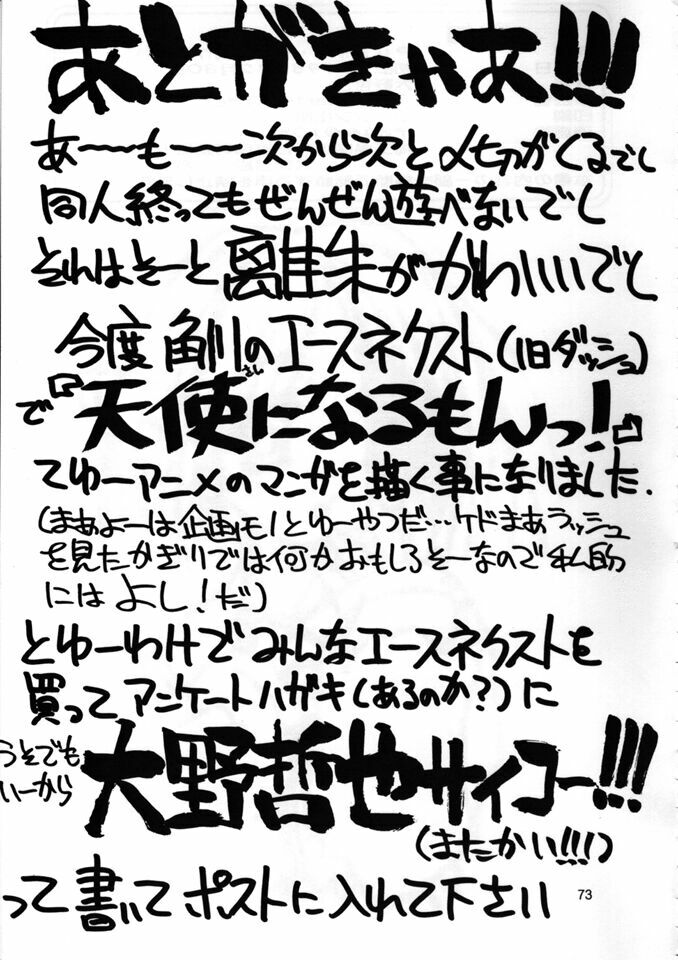 あとがきゃあ!!!
あーーもーー次から次と〆切がくるでし
同人終ってもぜんぜん遊べないでし
それはそーと離珠がかわいいでし
今度角川のエースネクスト(旧ダッシュ)
で『天使になるもんっ!』
てゆーアニメのマンガを描く事になりました.
(まあよーは企画モノとゆーやつだ…ケドまあラッシュ
を見たかぎりでは何かおもしろそーなので私的
にはよし!だ)
とゆーわけでみんなエースネクストを
買ってアンケートハガキ(あるのか?)に
うそでも
いーから
大野哲也サイコー!!!
(またかい!!!)
って書いてポストに入れて下さい
73